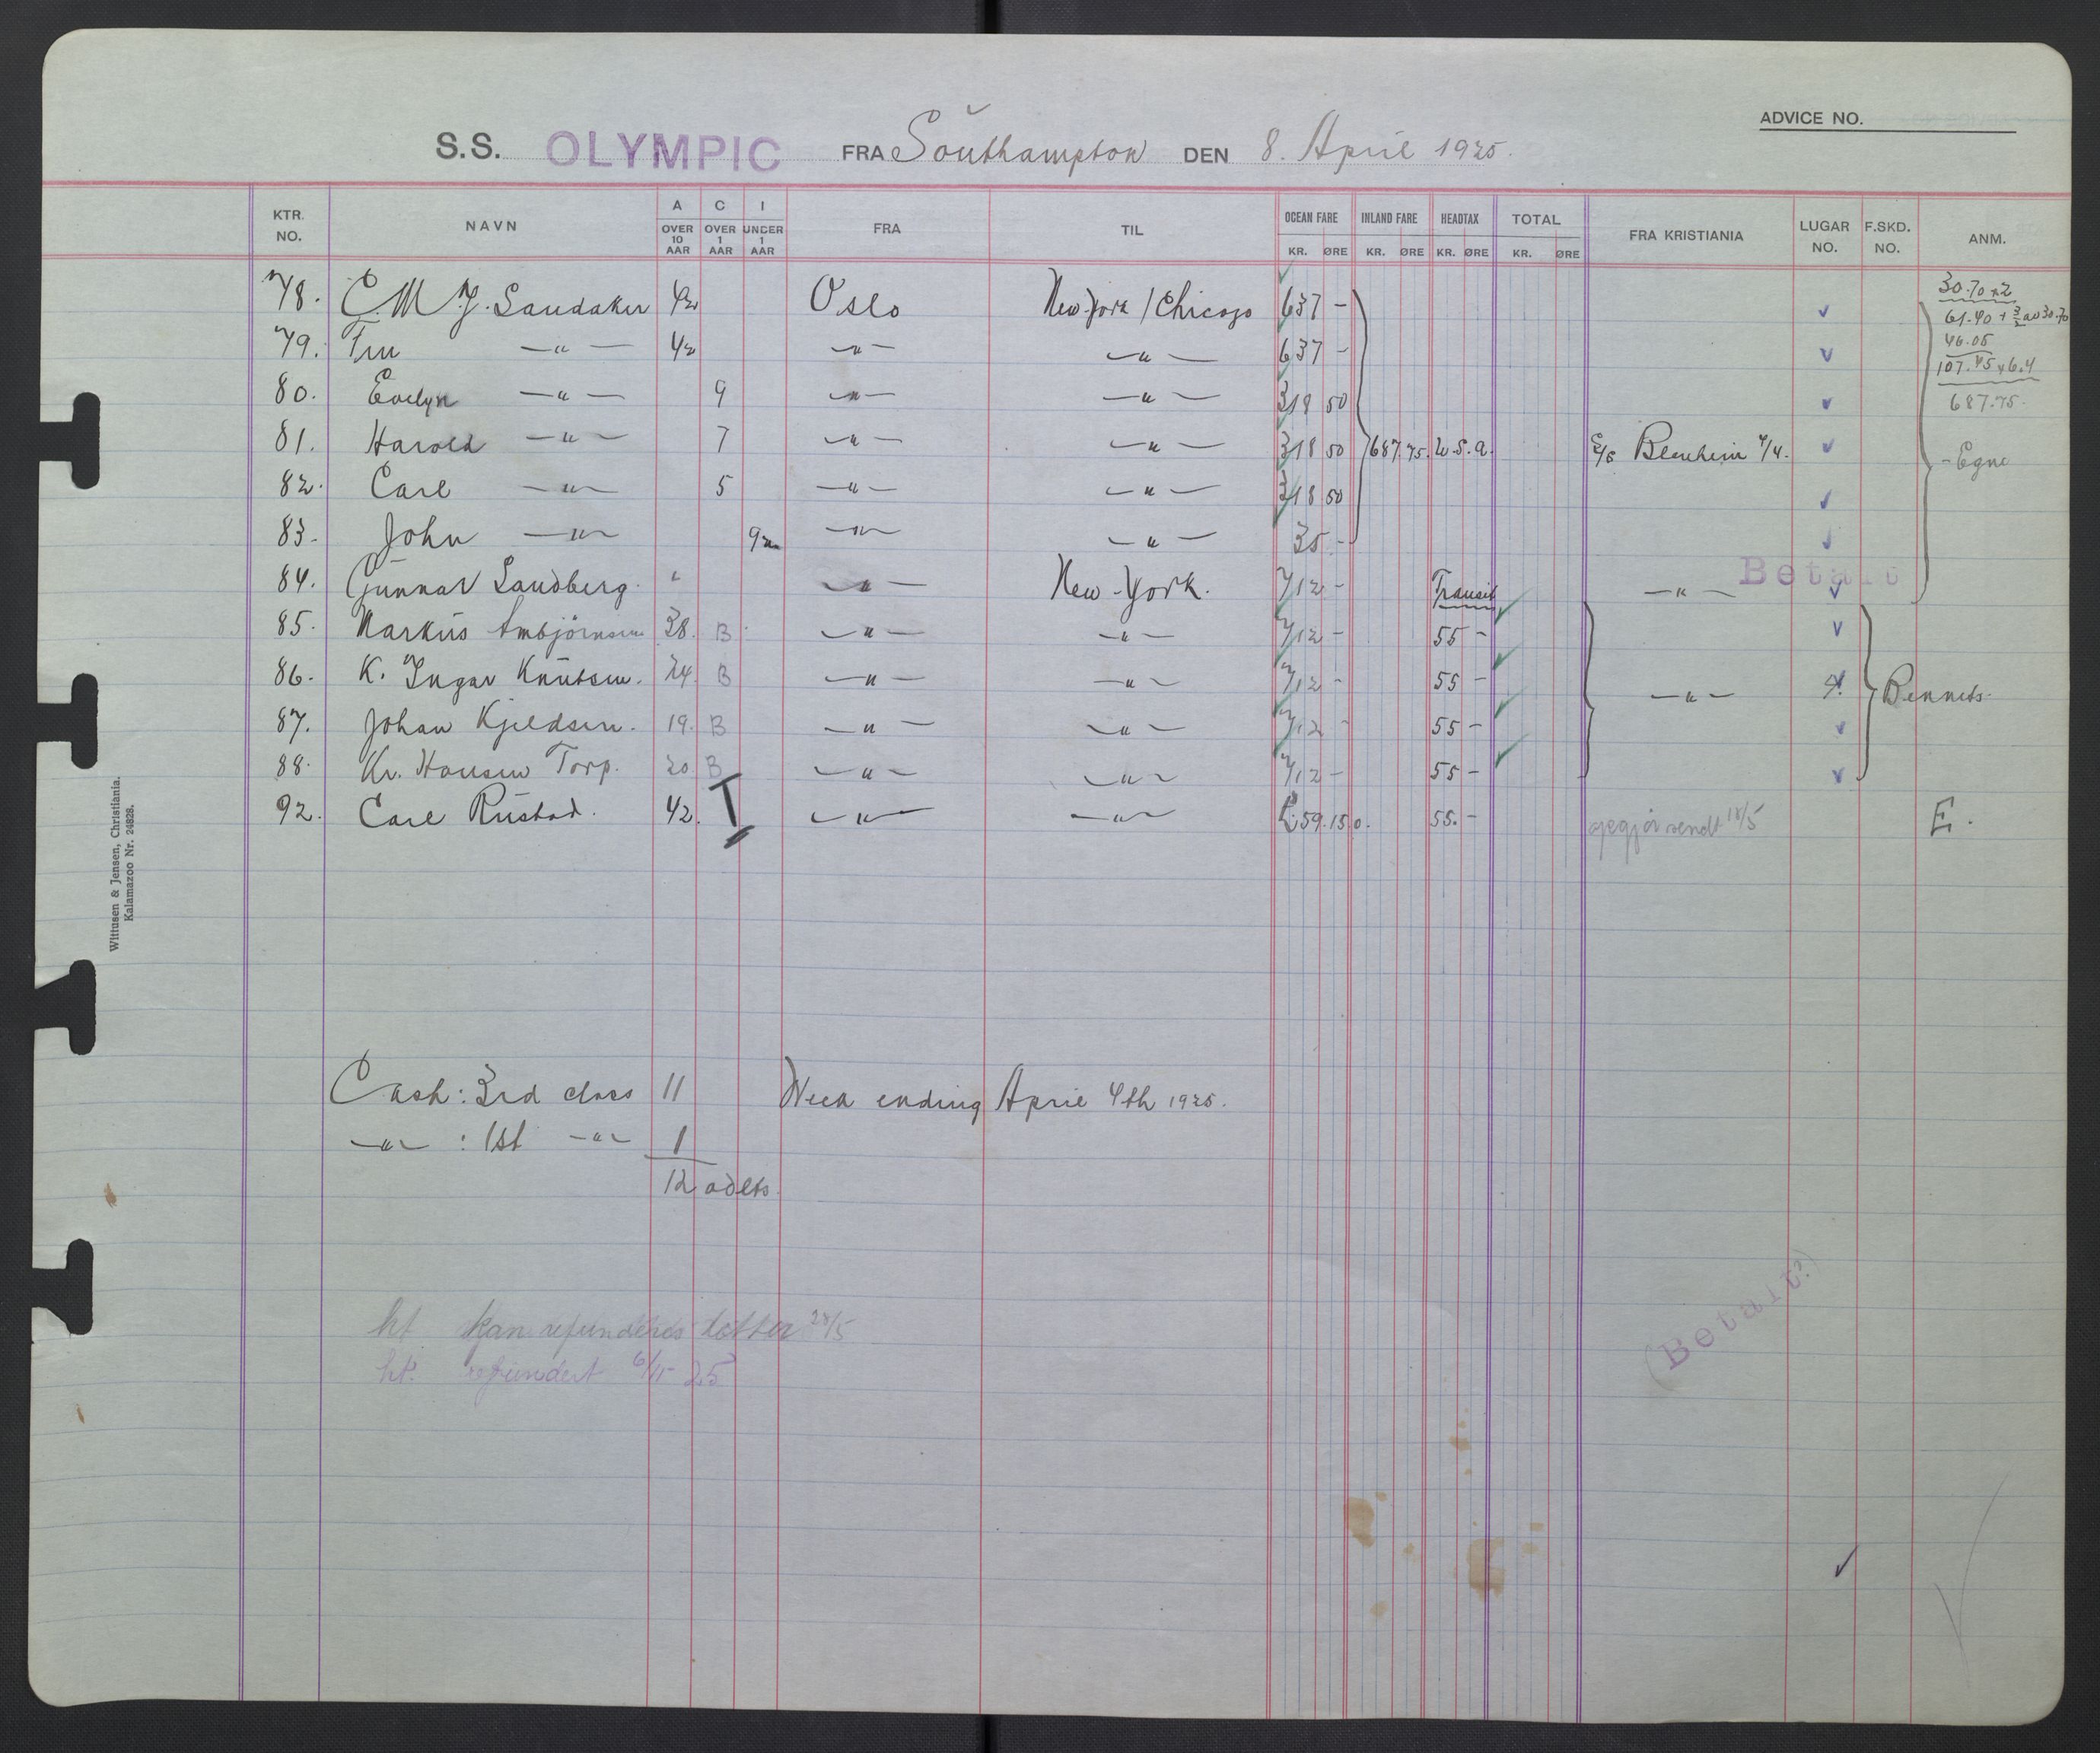 ADVICE NO.
S.S. OLYMPIC FRA Southampton DEN 8. April 1925.
KTR. NO. NAVN A OVER 10 AAR C OVER 1 AAR I UNDER 1 AAR FRA TIL OCEAN FARE KR. ØRE INLAND FARE KR. ØRE HEADTAX KR. ØRE TOTAL KR. ØRE FRA KRISTIANIA LUGAR NO. F.SKD. NO. ANM.
30.70 x 2
78. C. M. J. Sandaker 42 Oslo New York / Chicago 637 - 61.40 + 3/2 av 30.70
46.05
79. Fru -"- 42 -"- -"- 637 - 107.45 x 6.4
80. Evelyn -"- 9 -"- -"- 318 50 687.75.
81. Harold -"- 7 -"- -"- 318 50 687.75. U.S.A. S/S Blenheim 4/4. - Egne
82. Carl -"- 5 -"- -"- 318 50
83. John -"- -"- -"- 35 -
84. Gunnar Sandberg. " -"- New-York. 712 - Transit -"- Betalt
85. Markus Ambjörnsen 38. B -"- -"- 712 - 55 -
86. K. Ingar Knutsen. 24. B -"- -"- 712 - 55 - -"- Bennets.
87. Johan Kjeldsen. 19. B -"- -"- 712 - 55 -
88. Kr. Hansen Torp. 20. B -"- -"- 712 - 55 -
92. Carl Rustad. 42. I -"- -"- £ 59.15.0. 55. - sendt 18/5 E.
Wittusen & Jensen, Christiania.
Kalamazoo Nr. 24828.
Cash: 3rd class 11 Week ending April 4th 1925.
-"- : 1st -"- 1
12 adlts
ht kan refunderes letter 28/5
ht. refundert 6/11-25
(Betalt?)